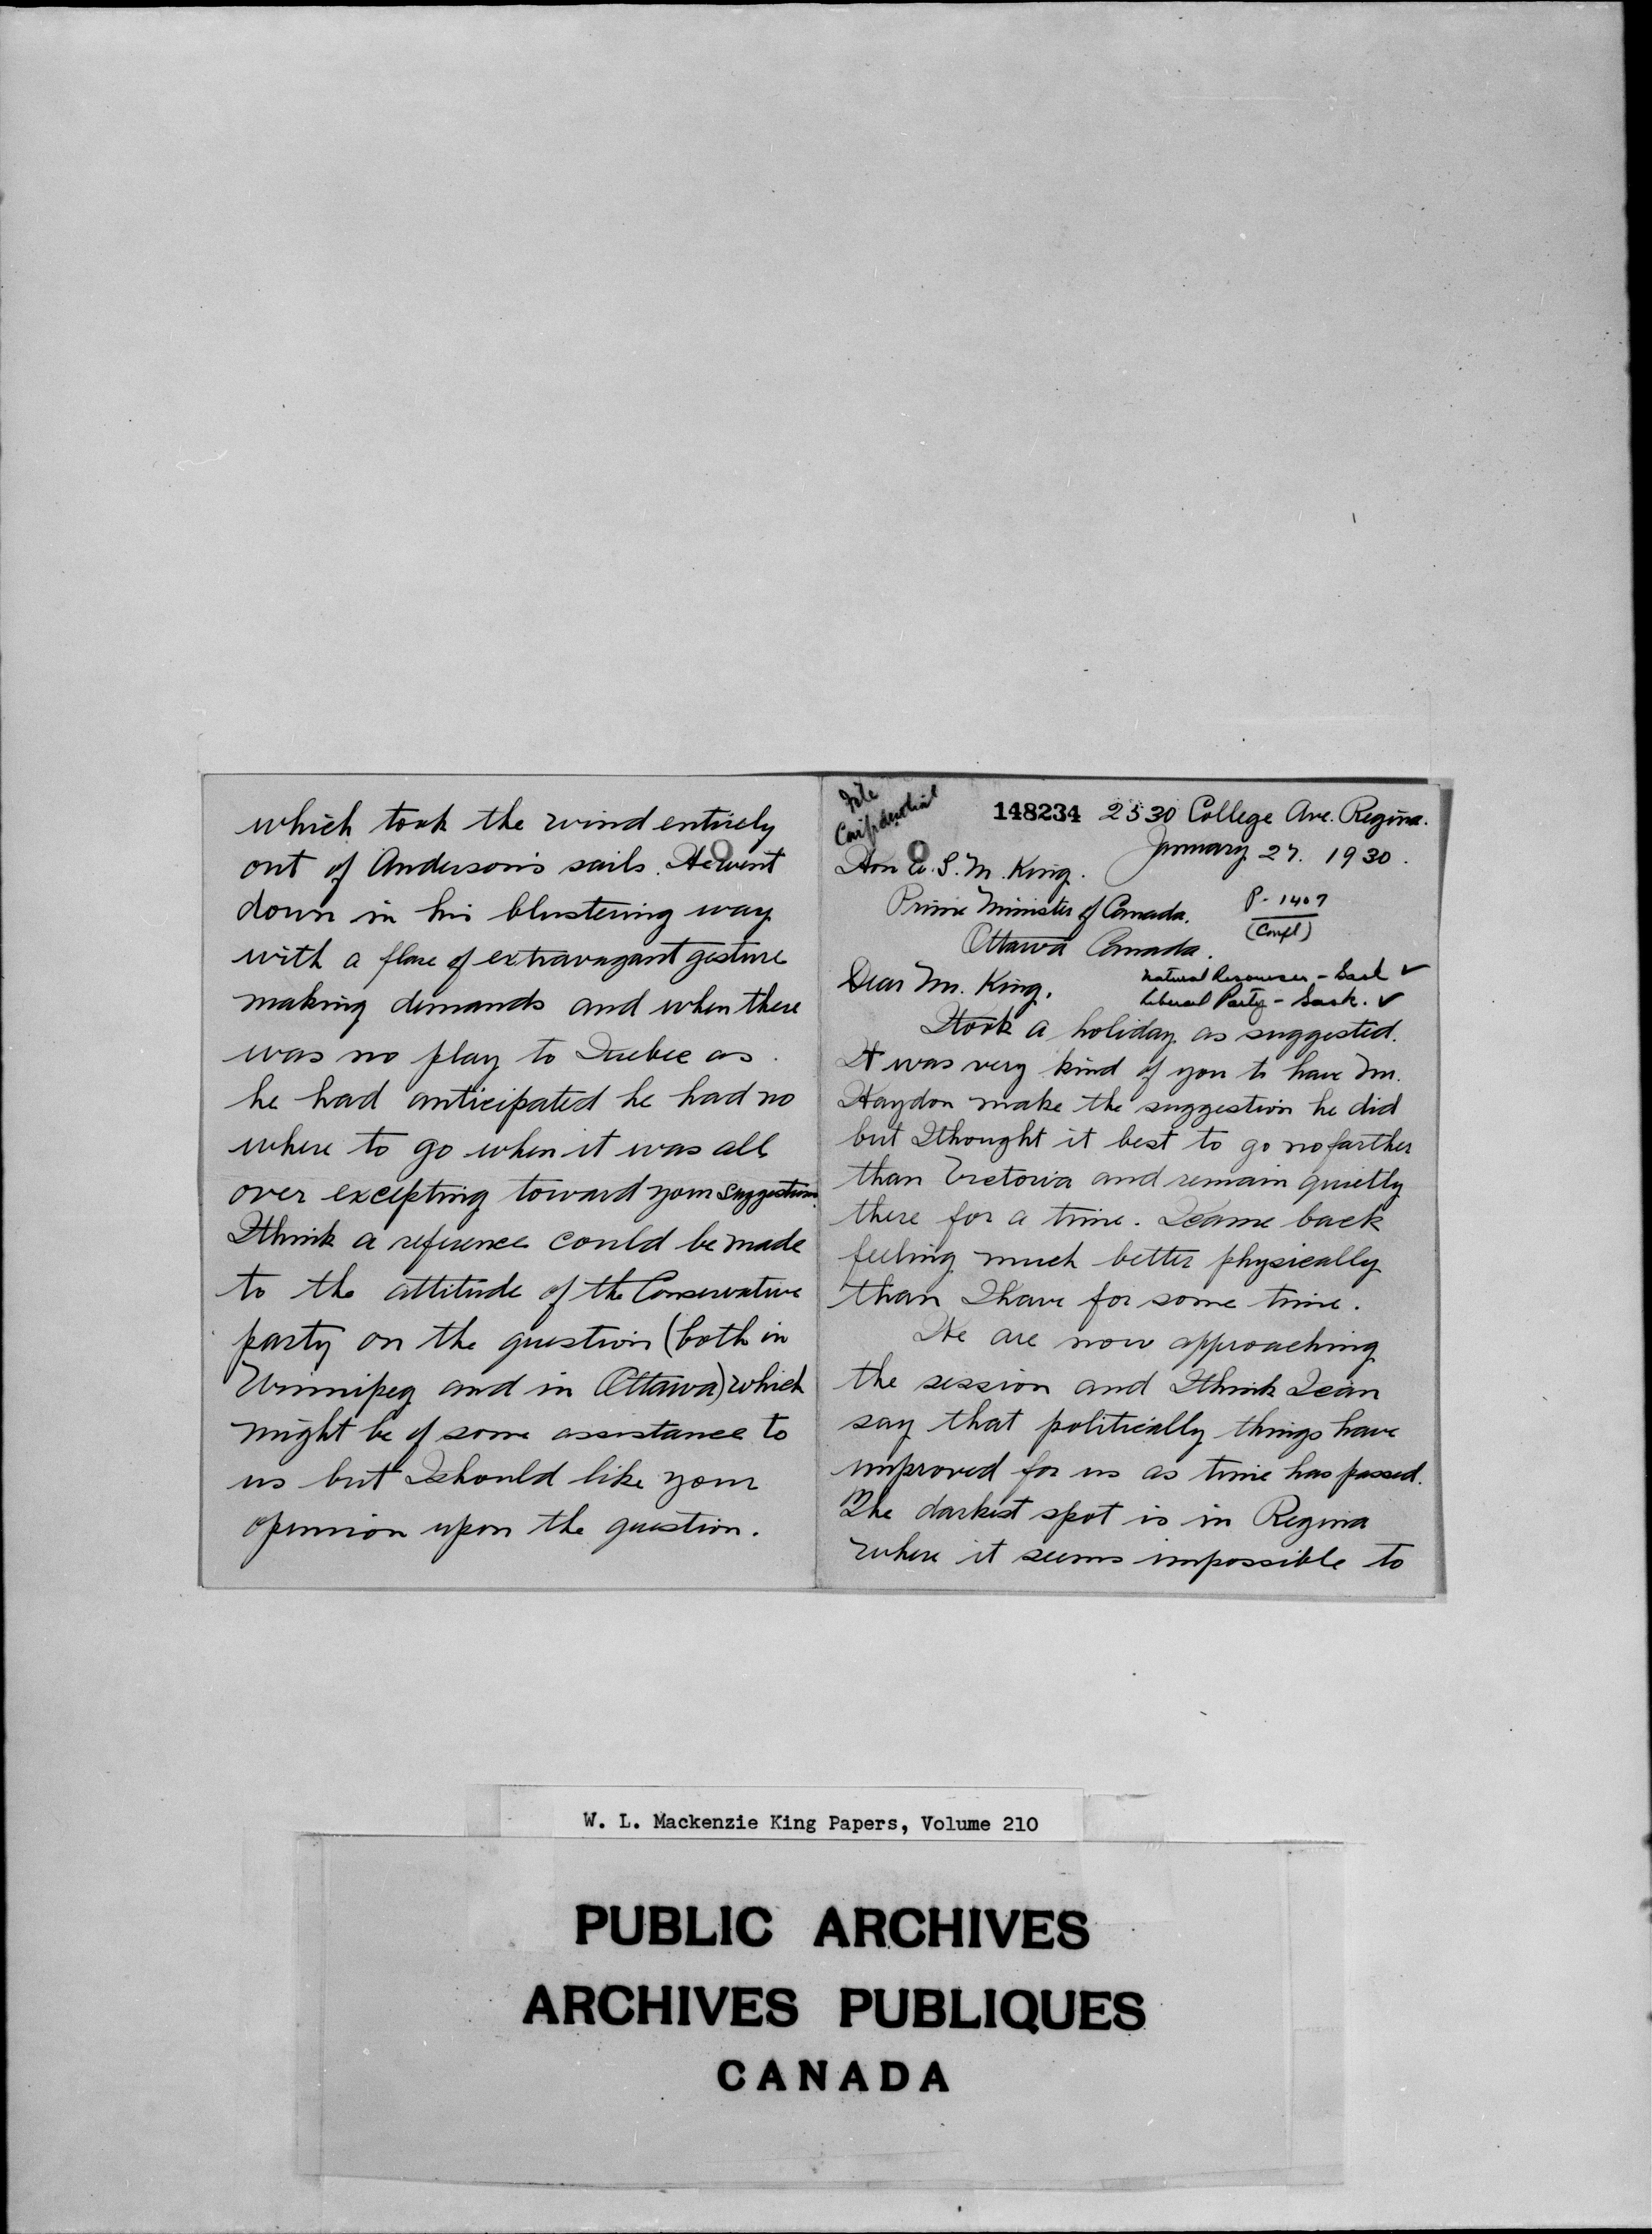 which took the wind entirely
out of Anderson's sails. He went
down in his blustering way
with a flare of extravagant gesture
making demands and when there
was no play to Quebec as
he had anticipated he had no
where to go when it was all
over excepting toward your suggestions.
I think a reference could be made
to the attitude of the Conservative
party on the question (both in
Winnipeg and in Ottawa) which
might be of some assistance to
us but I should like your
opinion upon the question.
File
Confidential
148234 2530 College Ave. Regina.
January 27. 1930.
Hon W. L. M. King.
Prime Minister of Canada.
Ottawa Canada.
P-1407
(Conf)
Natural Resources - Sask ✓
Liberal Party - Sask. ✓
Dear Mr. King.
I took a holiday as suggested.
It was very kind of you to have Mr.
Haydon make the suggestion he did
but I thought it best to go no farther
than Victoria and remain quietly
there for a time. I came back
feeling much better physically
than I have for some time.
We are now approaching
the session and I think I can
say that politically things have
improved for us as time has passed.
The darkest spot is in Regina
where it seems impossible to
W. L. Mackenzie King Papers, Volume 210
PUBLIC ARCHIVES
ARCHIVES PUBLIQUES
CANADA